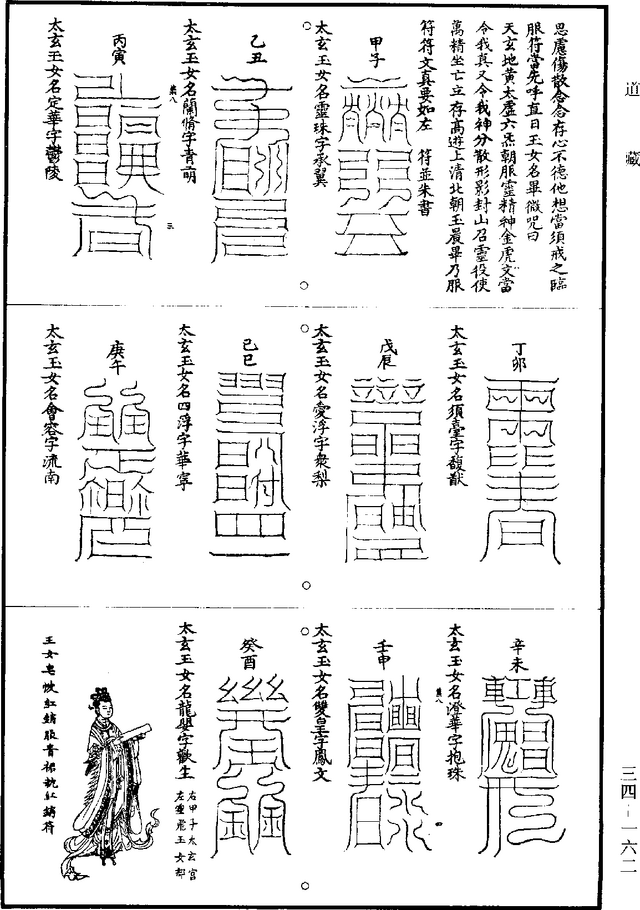 道藏
思慮傷散念念存心不德他想當須戒之臨
服符當先呼直日玉女名畢微咒曰
天玄地黃太虛六炁朝服靈精神金虎文當
令我真又令我神分散形影封山召靈役使
萬精坐亡立存高遊上清北朝玉晨畢乃服
符符文真要如左　符並朱書
甲子
太玄玉女名靈珠字承翼
乙丑
太玄玉女名蘭脩字青明
丙寅
三
太玄玉女名定華字鬱陵
丁卯
太玄玉女名須臺字馥猷
戊辰
太玄玉女名愛浮字衆梨
己巳
太玄玉女名四浮字華寧
庚午
太玄玉女名會容字流南
辛未
太玄玉女名澄華字抱珠
壬申
四
太玄玉女名雙皇字鳳文
癸酉
太玄玉女名龍嬰字歡生
右甲子太玄宮
左靈飛玉女部
玉女皂帔紅綃服青裙執紅綃符
三四－一六二